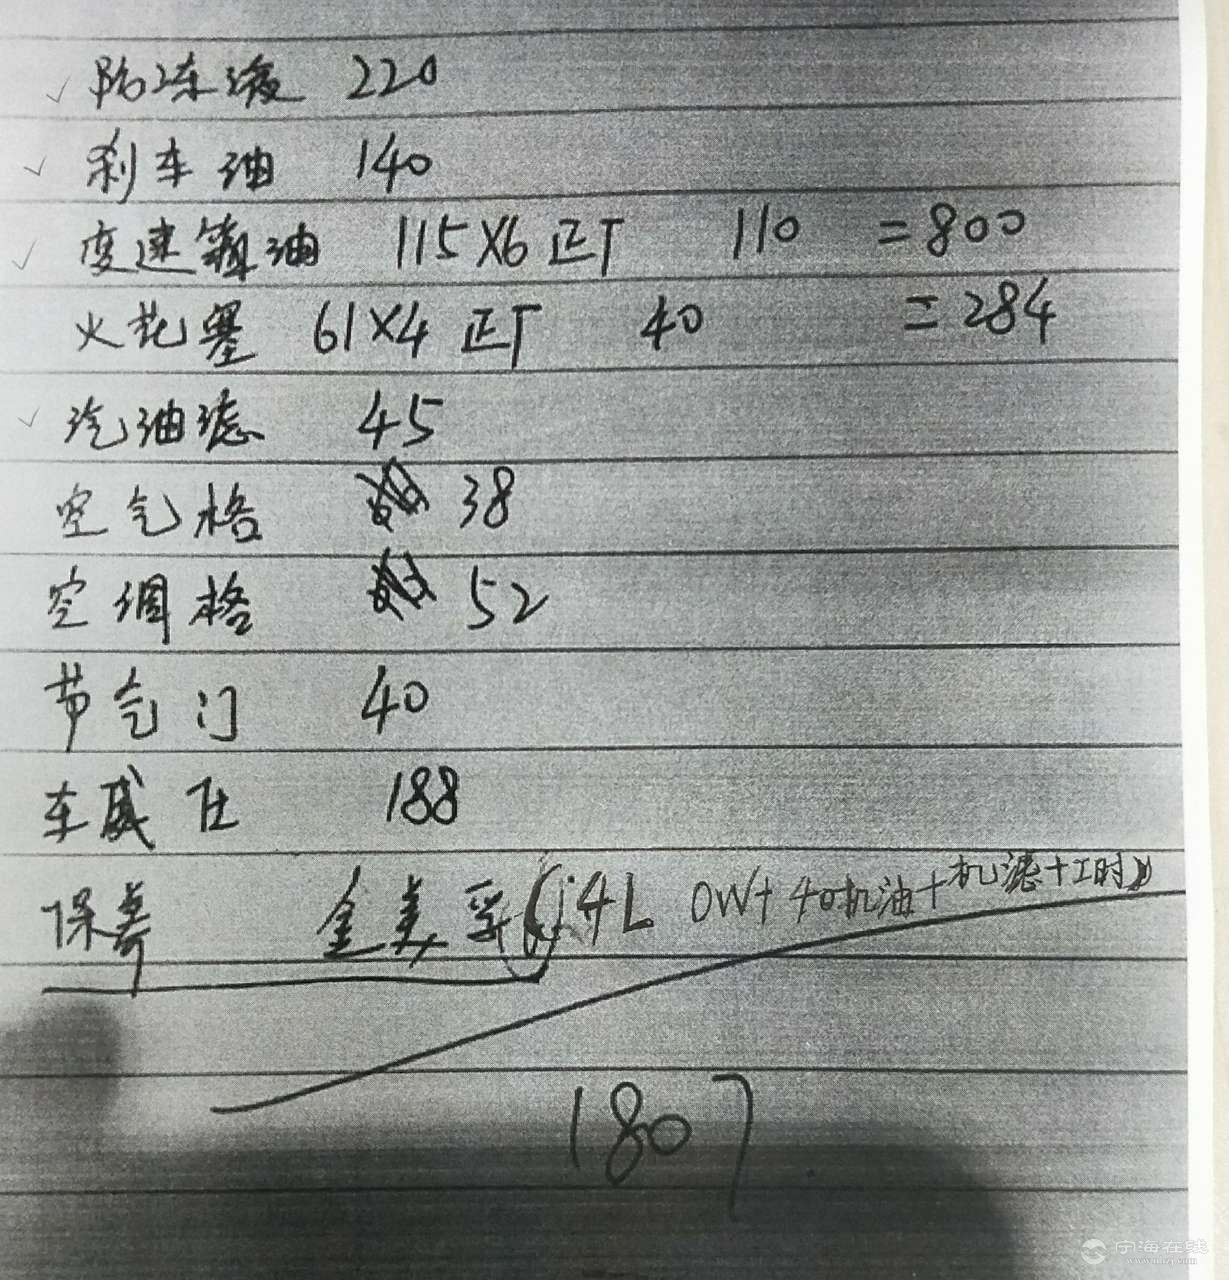 防冻液 220
刹车油 140
变速箱油 115X6 正T 110 =800
火花塞 61X4 正T 40 =284
汽油滤 45
空气格 38
空调格 52
节气门 40
车威仕 188
保养 金美孚 4L 0W+40机油+机滤+工时
1807
宁海在线